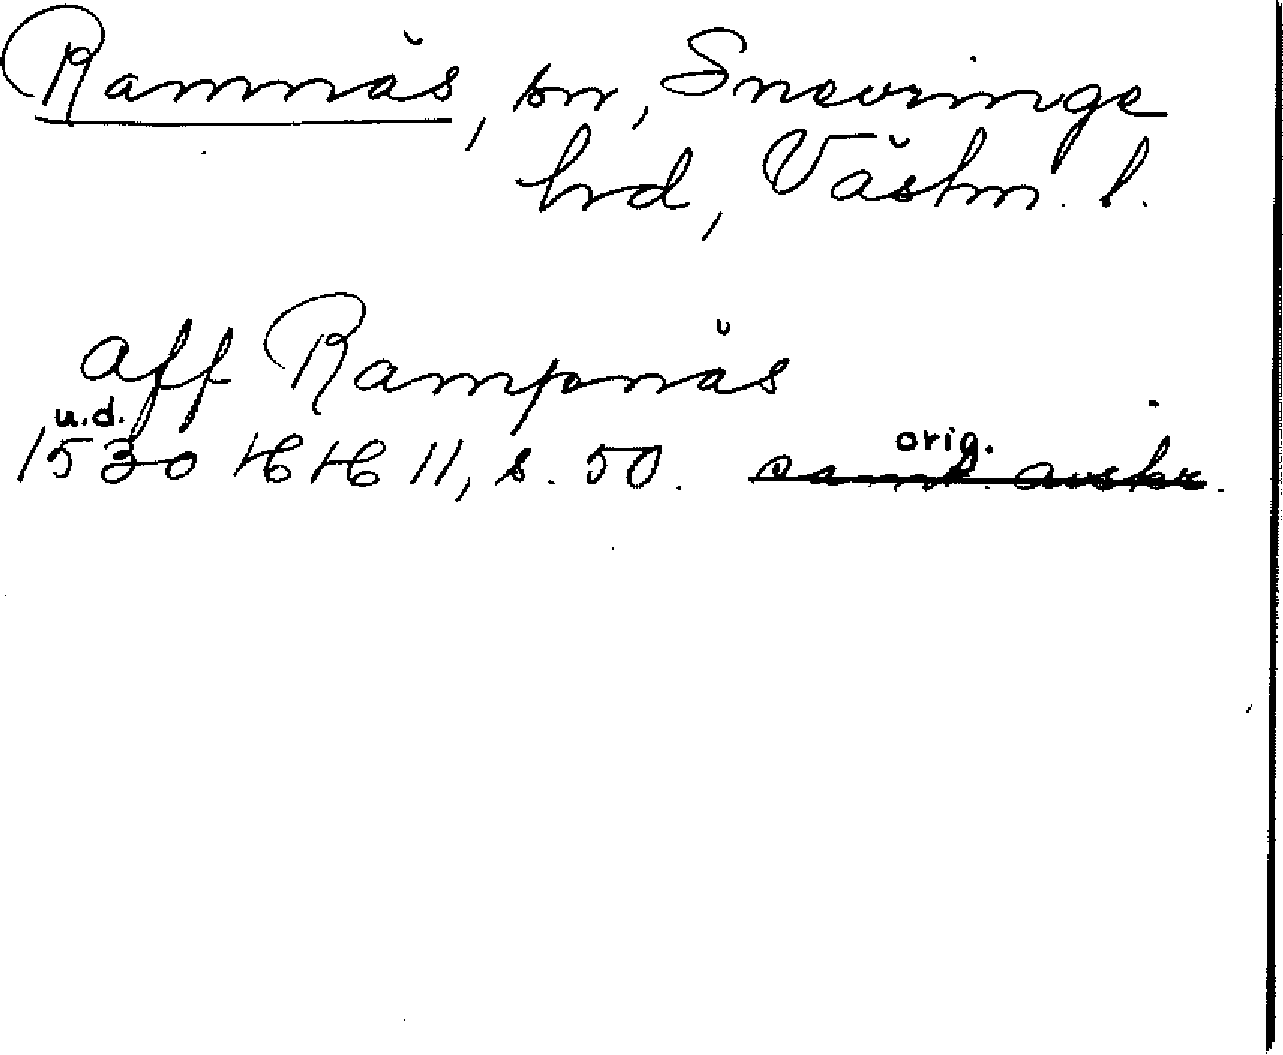 Ramnäs, sn, Snevringe
hrd, Västm. l.
aff Rampnäs
u.d.
1530 HH 11, s. 50. samt. avskr.
orig.